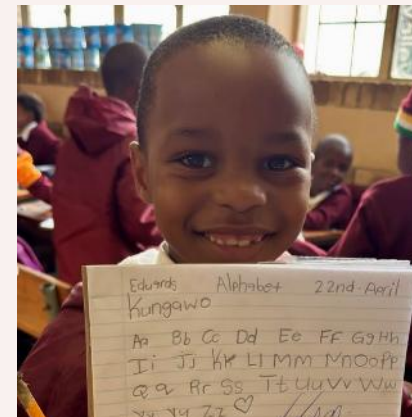 Edwards Alphabet 22nd-April
Kungawo
Aa Bb Cc Dd Ee FF Gg Hh
Ii Jj Kk Ll Mm Nn Oo Pp
Qq Rr Ss Tt Uu Vv Ww
Yy Zz ♡